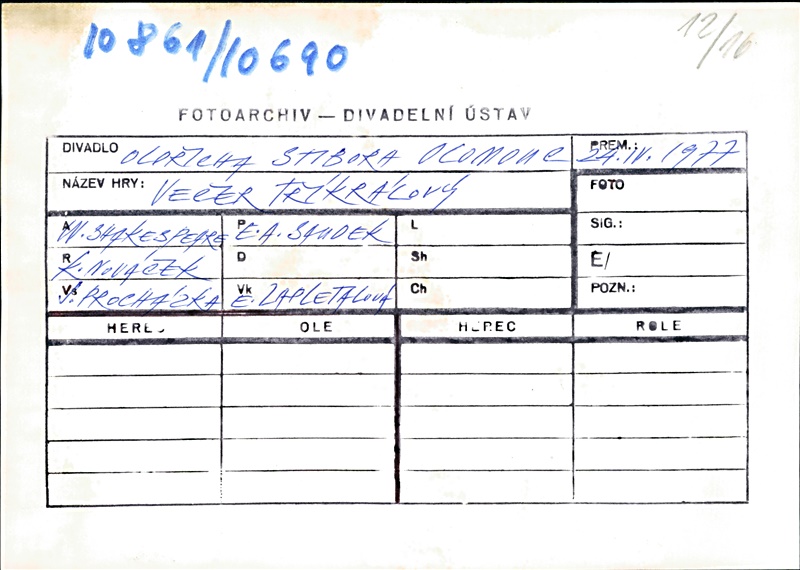 10861/10690
12/16
FOTOARCHIV — DIVADELNÍ ÚSTAV
DIVADLO OLDŘICHA STIBORA OLOMOUC PREM.: 24.IV.1977
NÁZEV HRY: VEČER TŘÍKRÁLOVÝ FOTO
A W. SHAKESPEARE P E.A. SAUDEK L SIG.:
R K. NOVÁČEK D Sh Č/
Vs J. PROCHÁZKA Vk E. ZAPLETALOVÁ Ch POZN.:
HEREC ROLE HEREC ROLE